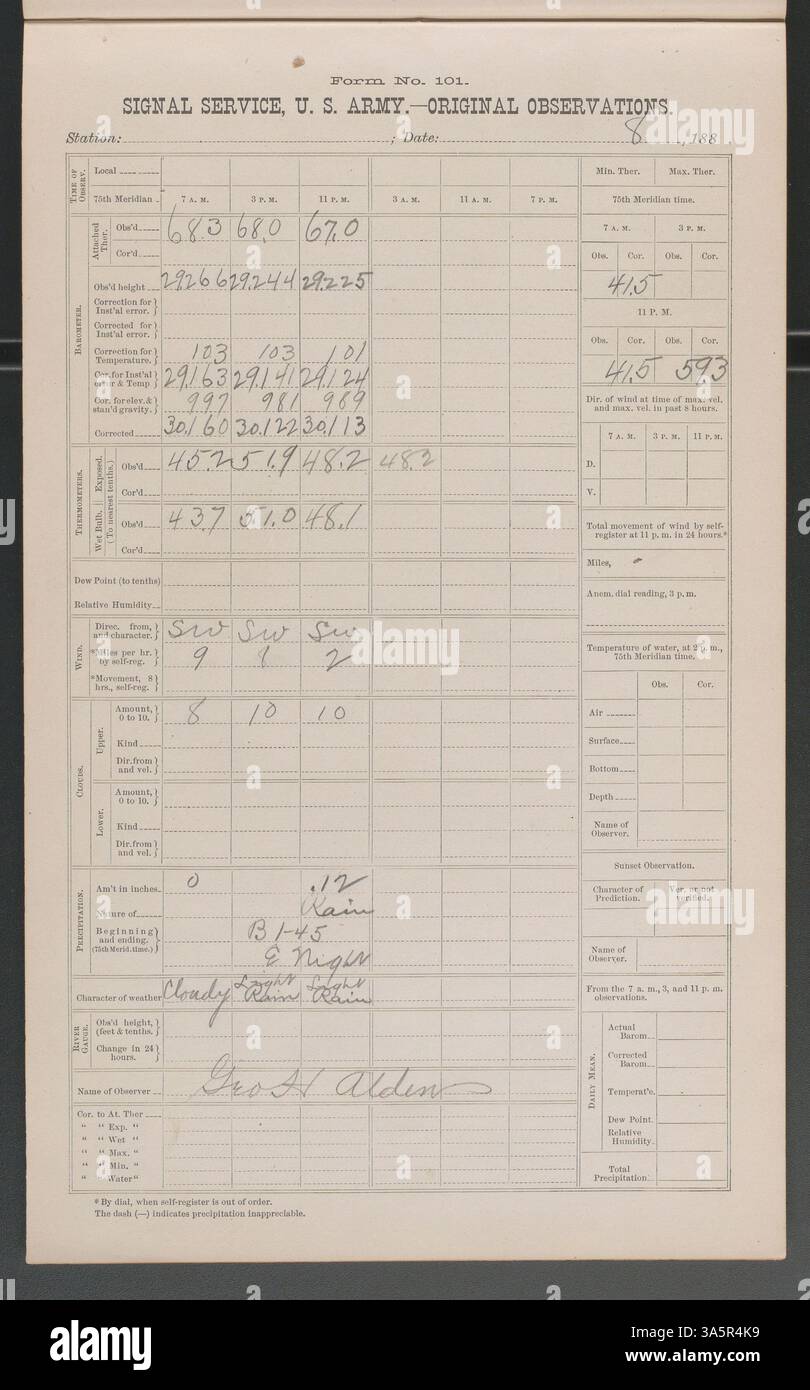 Form No. 101.
SIGNAL SERVICE, U. S. ARMY.—ORIGINAL OBSERVATIONS.
Station: ; Date: 8 , 188 .
TIME OF OBSERV.
Local
75th Meridian 7 A. M. 3 P. M. 11 P. M. 3 A. M. 11 A. M. 7 P. M.
BAROMETER.
Attached Ther.
Obs'd 68.3 68.0 67.0
Cor'd
Obs'd height 29.266 29.244 29.225
Correction for Inst'al error.
Corrected for Inst'al error.
Correction for Temperature. 103 103 101
Cor. for Inst'al error & Temp 29.163 29.141 29.124
Cor. for elev. & stan'd gravity. 997 981 989
Corrected 30.160 30.122 30.113
THERMOMETERS.
Exposed.
Wet Bulb.
(To nearest tenths.)
Obs'd 45.2 51.9 48.2 48.2
Cor'd
Obs'd 43.7 51.0 48.1
Cor'd
Dew Point (to tenths)
Relative Humidity
WIND.
Direc. from, and character. SW SW SW
*Miles per hr. by self-reg. 9 8 2
*Movement, 8 hrs., self-reg.
CLOUDS.
Upper.
Amount, 0 to 10. 8 10 10
Kind
Dir. from and vel.
Lower.
Amount, 0 to 10.
Kind
Dir. from and vel.
PRECIPITATION.
Am't in inches. 0 .12
Nature of Rain
Beginning and ending. (75th Merid. time.) B 1-45
E Night
Character of weather Cloudy Light Rain Light Rain
RIVER GAUGE.
Obs'd height, (feet & tenths.
Change in 24 hours.
Name of Observer Geo H Alden
Cor. to At. Ther
" " Exp. "
" " Wet "
" " Max. "
" " Min. "
" " Water "
Min. Ther. Max. Ther.
75th Meridian time.
7 A. M. 3 P. M.
Obs. Cor. Obs. Cor.
41.5
11 P. M.
Obs. Cor. Obs. Cor.
41.5 59.3
Dir. of wind at time of max. vel. and max. vel. in past 8 hours.
7 A. M. 3 P. M. 11 P. M.
D.
V.
Total movement of wind by self-register at 11 p. m. in 24 hours.*
Miles,
Anem. dial reading, 3 p. m.
Temperature of water, at 2 p. m., 75th Meridian time.
Obs. Cor.
Air
Surface
Bottom
Depth
Name of Observer.
Sunset Observation.
Character of Prediction. Ver. or not verified.
Name of Observer.
From the 7 a. m., 3, and 11 p. m. observations.
DAILY MEAN.
Actual Barom.
Corrected Barom.
Temperat'e.
Dew Point.
Relative Humidity.
Total Precipitation.
* By dial, when self-register is out of order.
The dash (—) indicates precipitation inappreciable.
alamy
Image ID: 3A5R4K9
www.alamy.com